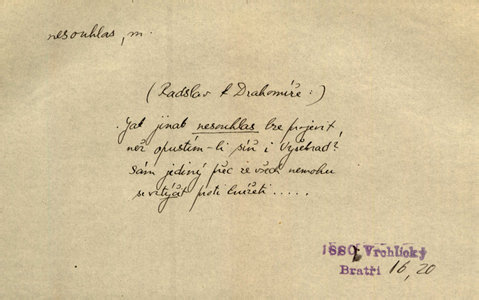 nesouhlas, m.
(Radslav k Drahomíře:)
Jak jinak nesouhlas lze projevit,
než opustím-li síň i Vyšehrad?
Sám jediný přec ze všech nemohu
se vztýčit proti knížeti.....
1880 Vrchlický
Bratři 16, 20